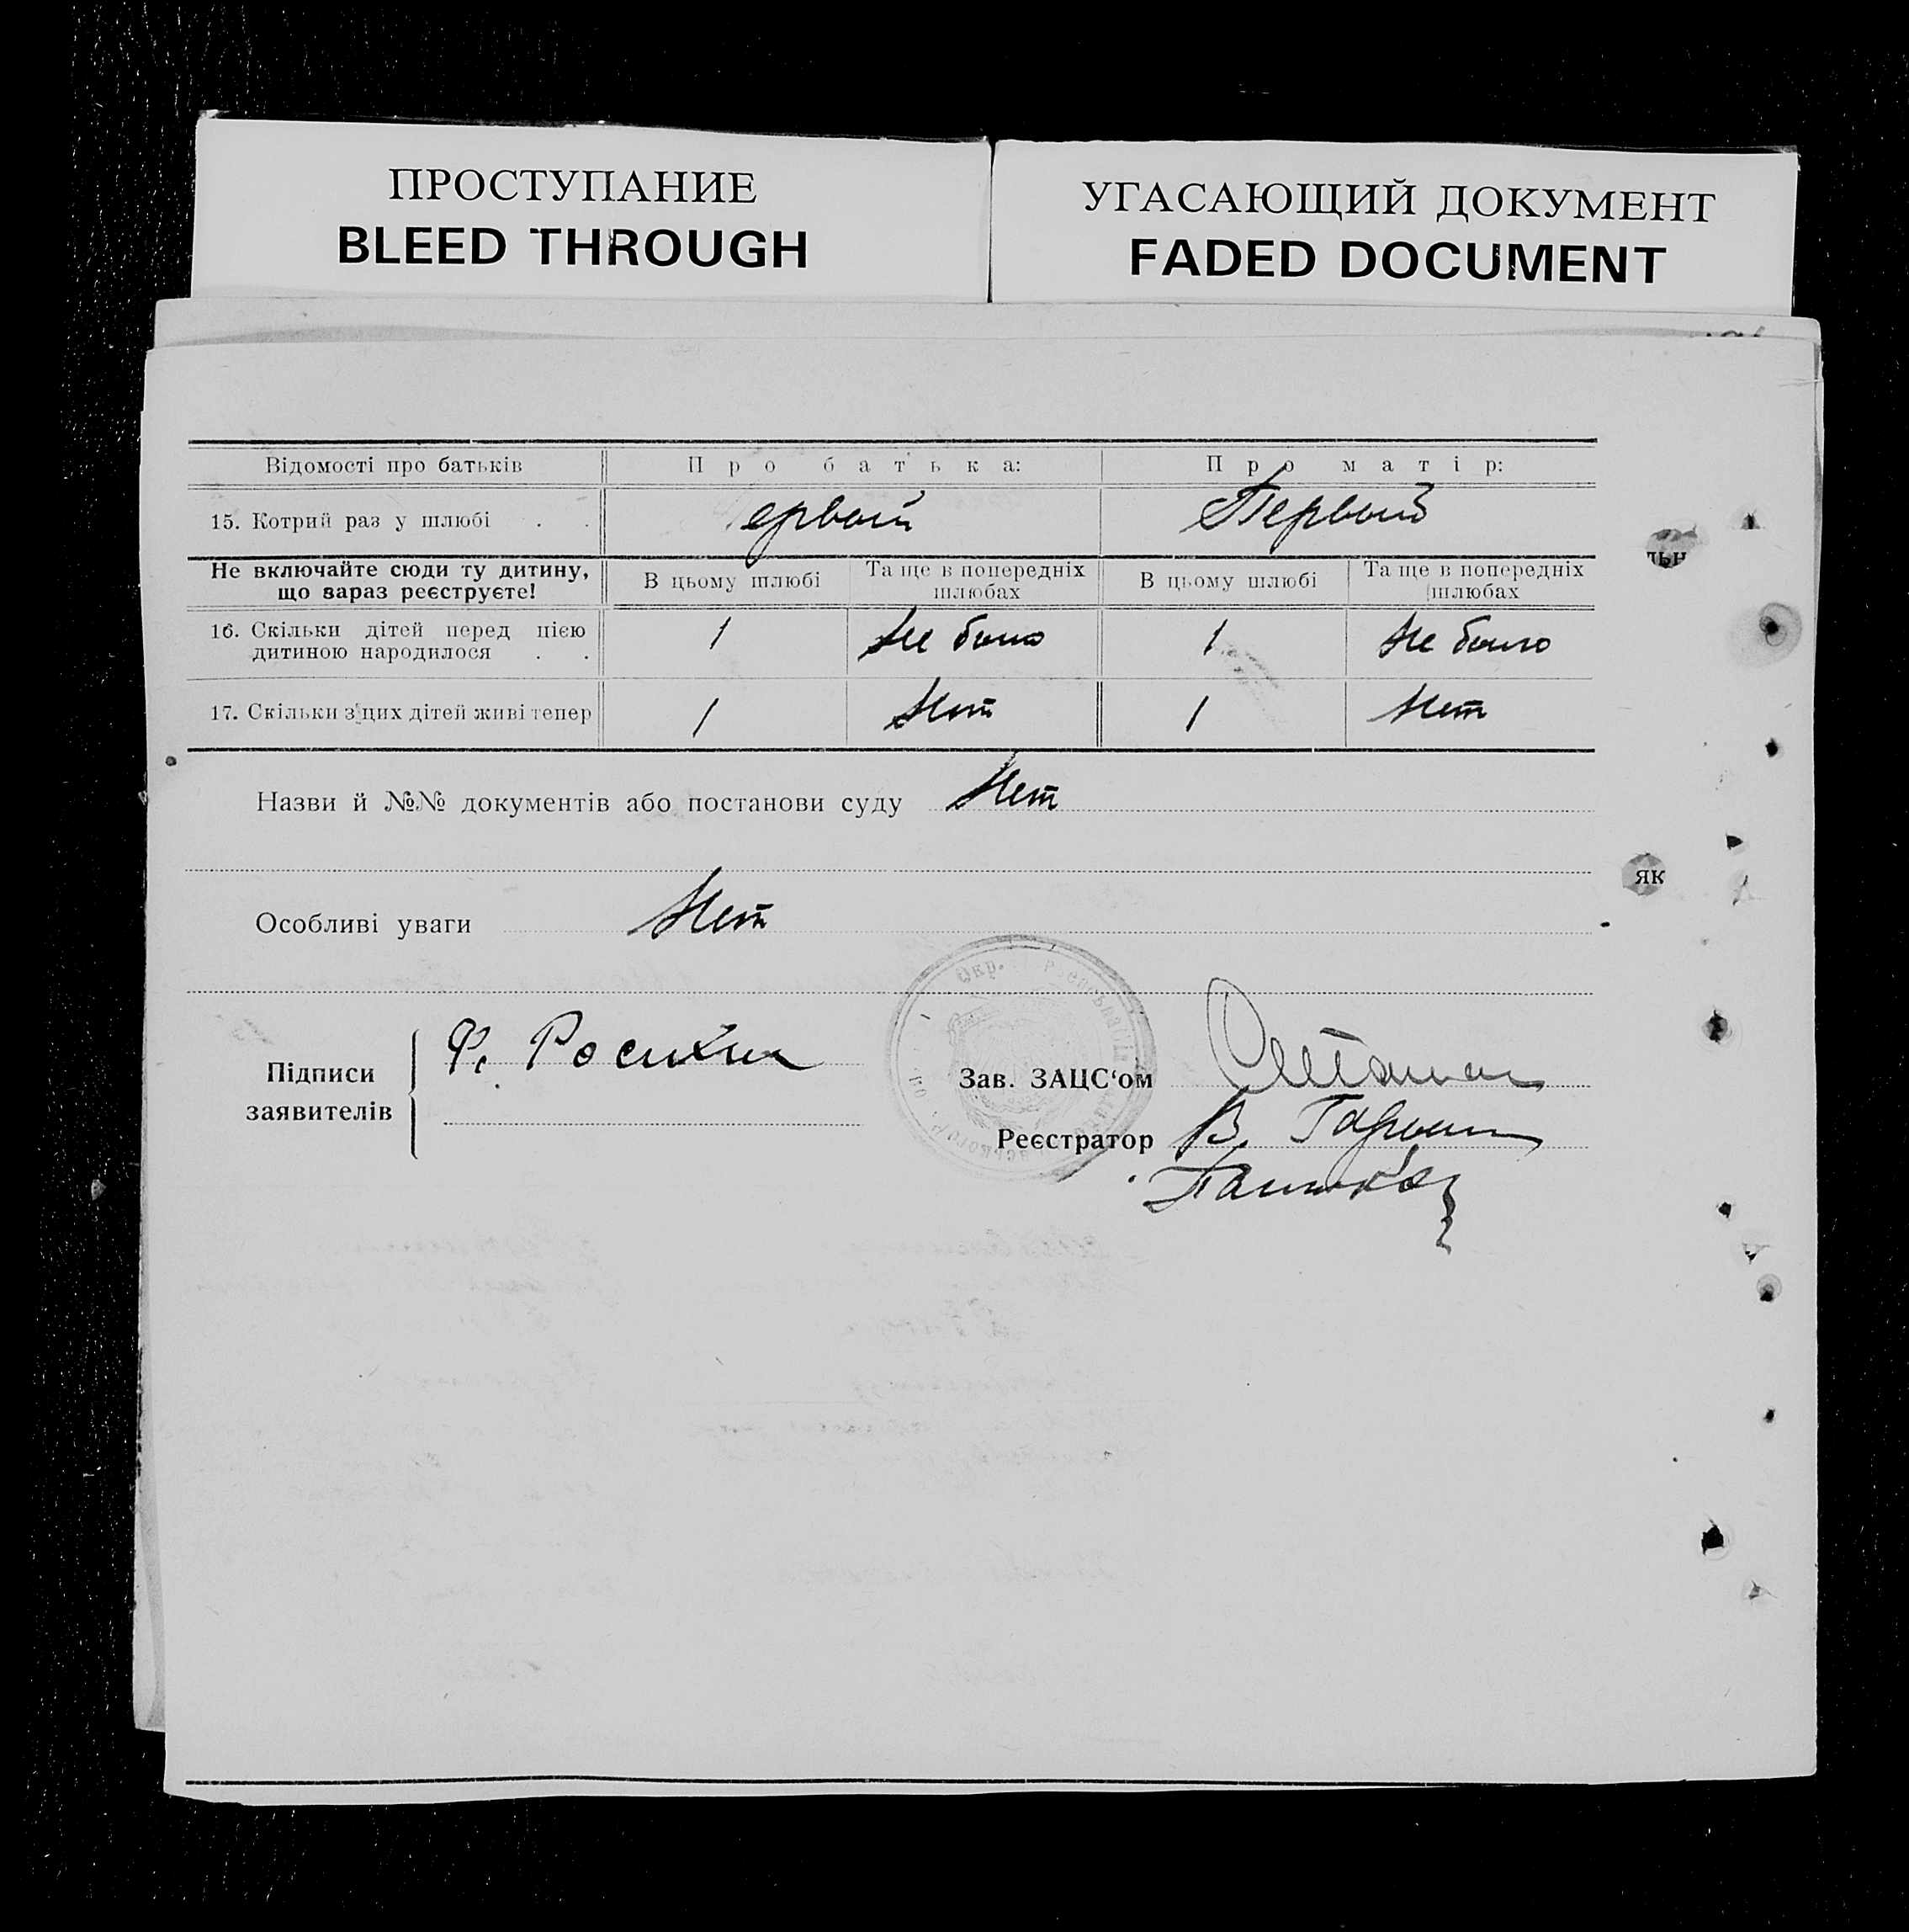 ПРОСТУПАНИЕ
BLEED THROUGH
УГАСАЮЩИЙ ДОКУМЕНТ
FADED DOCUMENT
Відомості про батьків Про батька: Про матір:
15. Котрий раз у шлюбі . . Первый Первый
Не включайте сюди ту дитину, що зараз реєструєте! В цьому шлюбі Та ще в попередніх шлюбах В цьому шлюбі Та ще в попередніх шлюбах
16. Скільки дітей перед цією
дитиною народилося . . 1 Не было 1 Не было
17. Скільки з цих дітей живі тепер 1 Нет 1 Нет
Назви й №№ документів або постанови суду Нет
Особливі уваги Нет
Підписи
заявителів
Ф. Росихин
Зав. ЗАЦС‘ом
Реєстратор В.
льн
як
Окр.